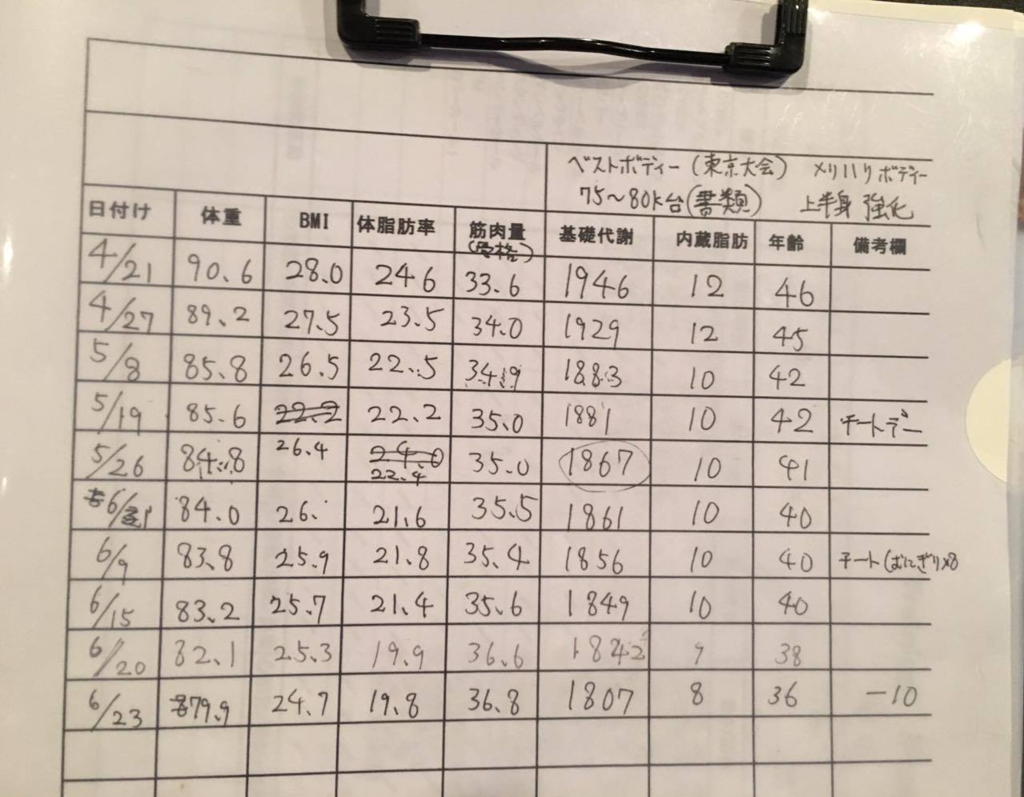 ベストボディー（東京大会） メリハリボディー
75～80k台(書類) 上半身 強化
日付け 体重 BMI 体脂肪率 筋肉量(骨格) 基礎代謝 内蔵脂肪 年齢 備考欄
4/21 90.6 28.0 24.6 33.6 1946 12 46
4/27 89.2 27.5 23.5 34.0 1929 12 45
5/8 85.8 26.5 22.5 34.9 1883 10 42
5/19 85.6 22.2 22.2 35.0 1881 10 42 チートデー
5/26 84.8 26.4 24.0 22.4 35.0 1867 10 41
6/ 84.0 26. 21.6 35.5 1861 10 40
6/9 83.8 25.9 21.8 35.4 1856 10 40 チート(おにぎり×8
6/15 83.2 25.7 21.4 35.6 1849 10 40
6/20 82.1 25.3 19.9 36.6 1842 9 38
6/23 79.9 24.7 19.8 36.8 1807 8 36 −10